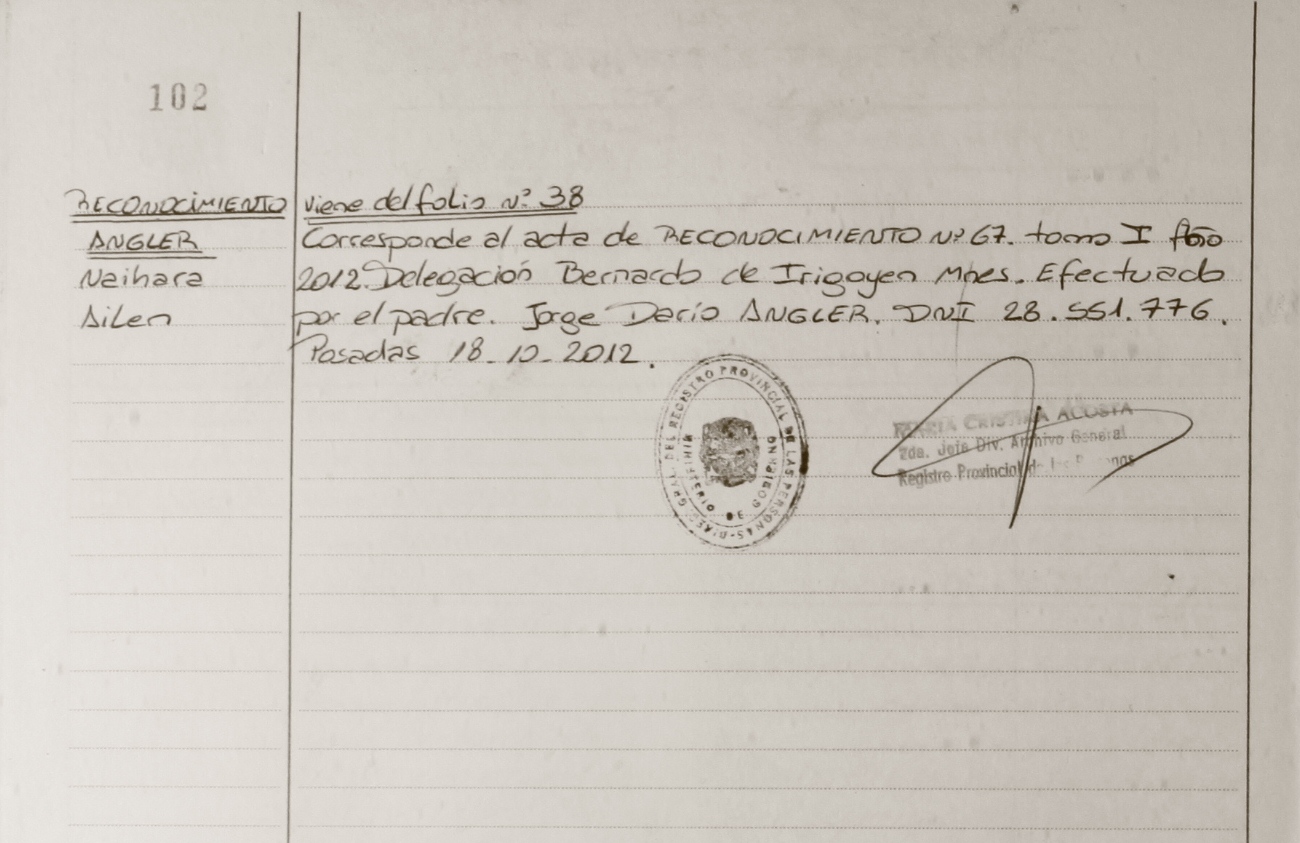 102
RECONOCIMIENTO Viene del folio Nº 38
ANGLER Corresponde al acta de RECONOCIMIENTO Nº 67. tomo I año
Naihara 2012. Delegación Bernardo de Irigoyen Mnes. Efectuado
Ailen por el padre. Jorge Dario ANGLER. DNI 28.551.776.
Posadas 18-10-2012.
DIREC. GRAL. DEL REGISTRO PROVINCIAL DE LAS PERSONAS
MINISTERIO DE GOBIERNO
MARIA CRISTINA ACOSTA
2da. Jefe Div. Archivo General
Registro Provincial de las Personas